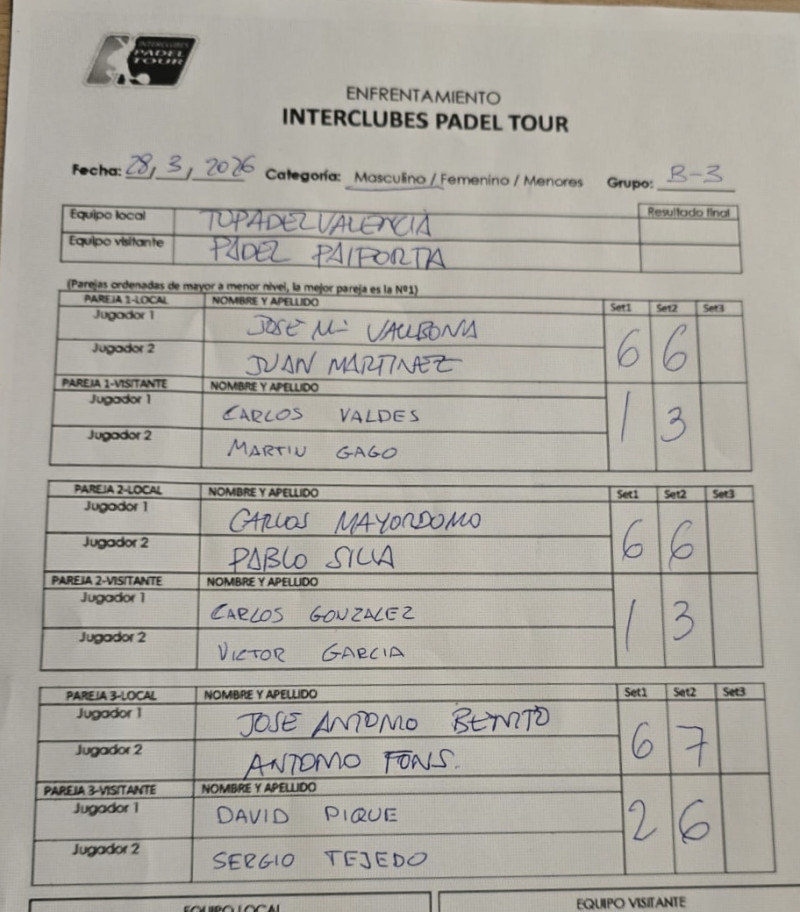 INTERCLUBES
PADEL
TOUR
ENFRENTAMIENTO
INTERCLUBES PADEL TOUR
Fecha: 28, 3, 2026 Categoría: Masculino / Femenino / Menores Grupo: B-3
Equipo local TUPADELVALENCIA Resultado final
Equipo visitante PADEL PAIPORTA
(Parejas ordenadas de mayor a menor nivel, la mejor pareja es la Nº1)
PAREJA 1-LOCAL NOMBRE Y APELLIDO Set1 Set2 Set3
Jugador 1 JOSE Mª VALLBONA
Jugador 2 JUAN MARTINEZ 6 6
PAREJA 1-VISITANTE NOMBRE Y APELLIDO
Jugador 1 CARLOS VALDES
Jugador 2 MARTIN GAGO 1 3
PAREJA 2-LOCAL NOMBRE Y APELLIDO Set1 Set2 Set3
Jugador 1 CARLOS MAYORDOMO
Jugador 2 PABLO SILLA 6 6
PAREJA 2-VISITANTE NOMBRE Y APELLIDO
Jugador 1 CARLOS GONZALEZ
Jugador 2 VICTOR GARCIA 1 3
PAREJA 3-LOCAL NOMBRE Y APELLIDO Set1 Set2 Set3
Jugador 1 JOSE ANTONIO BENITO
Jugador 2 ANTONIO FONS. 6 7
PAREJA 3-VISITANTE NOMBRE Y APELLIDO
Jugador 1 DAVID PIQUE
Jugador 2 SERGIO TEJEDO 2 6
EQUIPO LOCAL EQUIPO VISITANTE